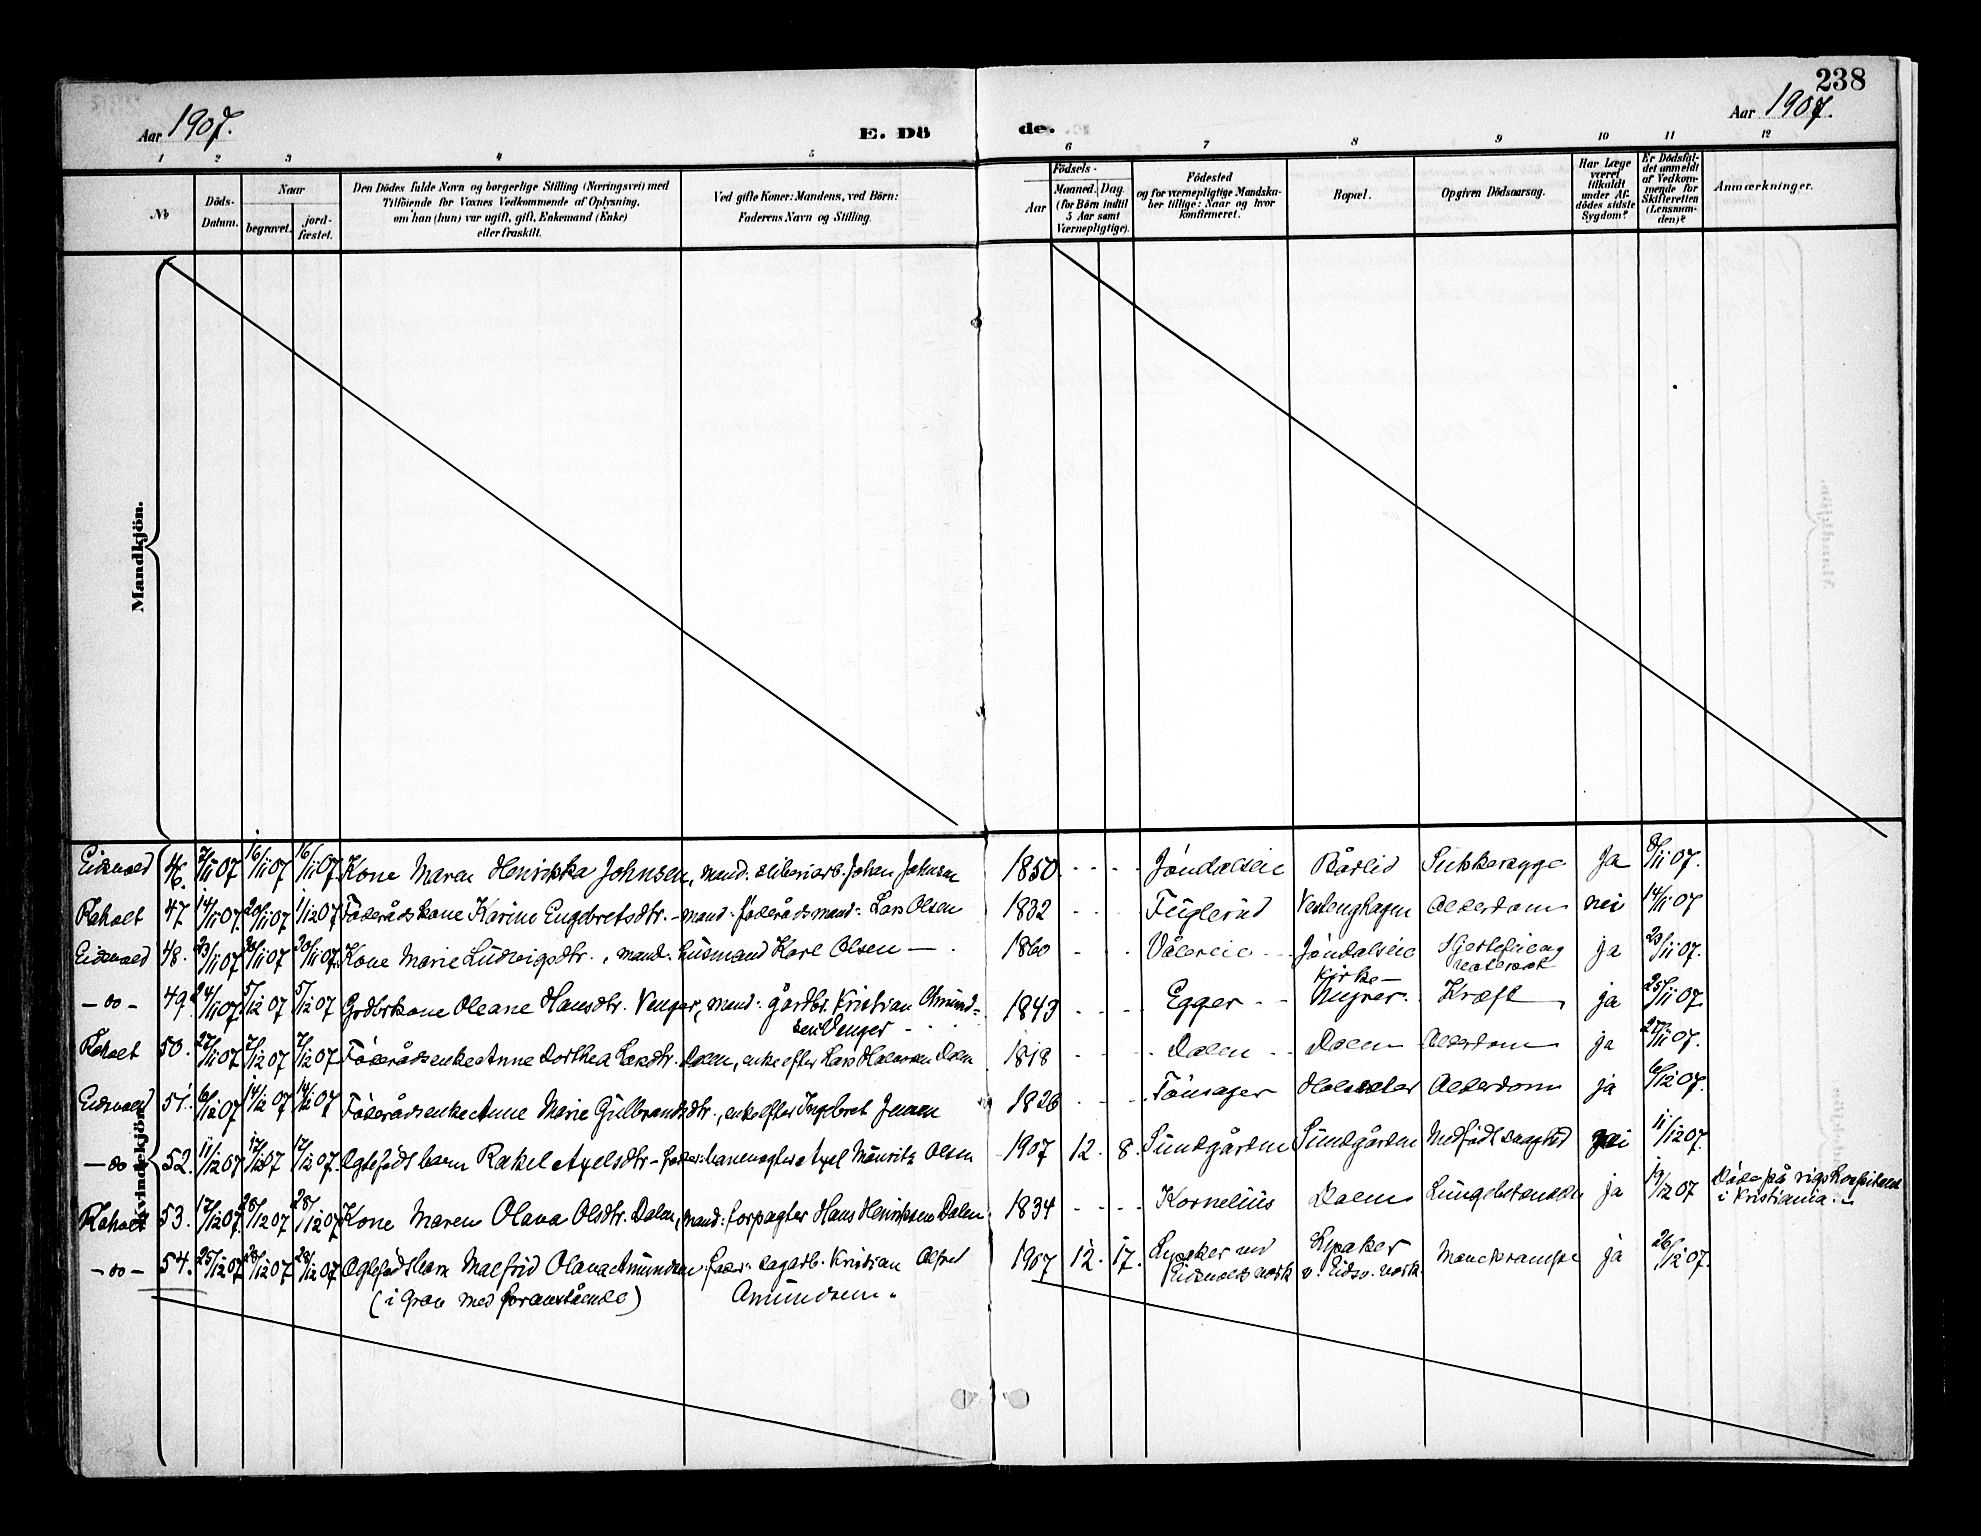 238
Aar 1907.
E. Dö
de.
Aar 1907.
1 2 3 4 5 6 7 8 9 10 11 12
No
Döds-
Datum.
Naar
begravet.
jord-
fæstet.
Den Dödes fulde Navn og borgerlige Stilling (Næringsvei) med
Tilföiende for Voxnes Vedkommende af Oplysning,
om han (hun) var ugift, gift, Enkemand (Enke)
eller fraskilt.
Ved gifte Koner: Mandens, ved Börn:
Faderens Navn og Stilling.
Födsels-
Aar
Maaned. Dag.
(for Börn indtil
5 Aar samt
Værnepligtige).
Födested
og for værnepligtige Mandska-
ber tillige: Naar og hvor
konfirmeret.
Bopæl.
Opgiven Dödsaarsag.
Har Læge
været
tilkaldt
under Af-
dödes sidste
Sygdom?
Er Dödsfal-
det anmeldt
af Vedkom-
mende for
Skifteretten
(Lensman-
den)?
Anmærkninger.
Mandkjön.
Kvindekjön.
Eidsvold 46. 7/11 07 16/11 07 16/11 07. Kone Maren Henrikka Johnsen, mand: sliberiarb. Johan Johnsen 1850 - - - - Jöndalseie Bårlid Sukkersyge Ja 8/11 07.
Raholt 47 14/11 07. 20/11 07 1/12 07 Föderådskone Karine Engebretsdtr. - mand: föderådsmand: Lars Olsen 1832 - - - Fuglerud Veslenghagen Alderdom nei 14/11 07
Eidsvold 48. 23/11 07 30/11 07 30/11 07. Kone Marie Ludvigsdtr., mand: husmand Karl Olsen — 1860 - - - Vålereie - - Jöndalseie Hjertefeil og ja 23/11 07.
- oo - 49. 24/11 07. 5/12 07 5/12 07 Grdbrkone Oleane Hansdtr. Venger, mand: gårdbr. Kristian Amund- 1843 - - - - Egger - - Kirke- Kræft ja 25/11 07
sen Venger - - -
Raholt 50. 27/11 07 7/12 07 7/12 07 Föderådsenke Anne Dorthea Larsdtr. Dalen, enke efter Lars Halvorsen Dalen 1818 - - - - Dalen - - Dalen Alderdom ja 27/11 07.
Eidsvold 51. 6/12 07 14/12 07 14/12 07 Föderådsenke Anne Marie Gulbrandsdtr., enke efter Ingebret Jensen 1826 - - - - Tönsager Alderdom ja 6/12 07.
- oo 52. 11/12 07. 17/12 07 17/12 07. Ægtefödt barn Rakel Axelsdtr - fader: banevogter Axel Mauritz Olsen 1907 12. 8. Sundgården Sundgården Medfödt svaghed nei 11/12 07.
Raholt 53. 17/12 07. 28/12 07 28/12 07 Kone Maren Olava Olsdtr. Dalen, mand: forpagter Hans Henriksen Dalen 1834 - - - - Kornelius Dalen Lungebetændelse ja 19/12 07 Döde på rigshospitalet
i Kristiania. -
- oo - 54. 25/12 07. 28/12 07 28/12 07 Ægtefödt barn Malfrid Olava Amundsen fader: dagarb. Kristian Alfred 1907 12. 17. Lysaker ved Lysaker ja 26/12 07.
Eidsvolds værk v. Eidsv. værk.
(i grav med foranstående) Amundsen.